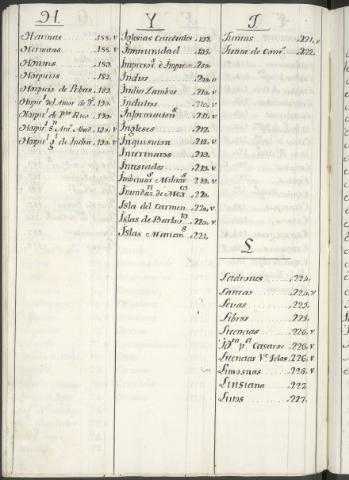 H.
Harinas .188. v
Hermanas .188. v
Honores .189.
Hospicios .189.
Hospicio de Pobres .189.
Hospit.l del Amor de D.s .190.
Hospit.l de Pto Rico .190.
Hospit.l S.n Ant.o Abad .190. v
Hospit.l g.l de Indios .190. v
Y
Iglesias Catedrales .192.
Inmunidad .195.
Impresion.s é Impres
Indios .210. v
Indios Zambos .210. v
Indultos .210. v
Informacion.s .211. v
Ingleses .212.
Inquisicion .212. v
Interinarios .213.
Intestados .213. v
Inválidos Militar.s .213. v
Inundac.n de Mex.co .220.
Isla del Carmen .220. v
Islas de Barlov.to .220. v
Islas Marian.s .221.
J
Juntas .221. v
Junta de Com.o .222.
L
Ladrones .224.
Lanzas .224. v
Levas .225.
Libros .225.
Licencias .226. v
Yd.m p.a Casarse .226. v
Licencias V.s Telas .226. v
Limosnas .226. v
Luisiana .227.
Lutos .227.